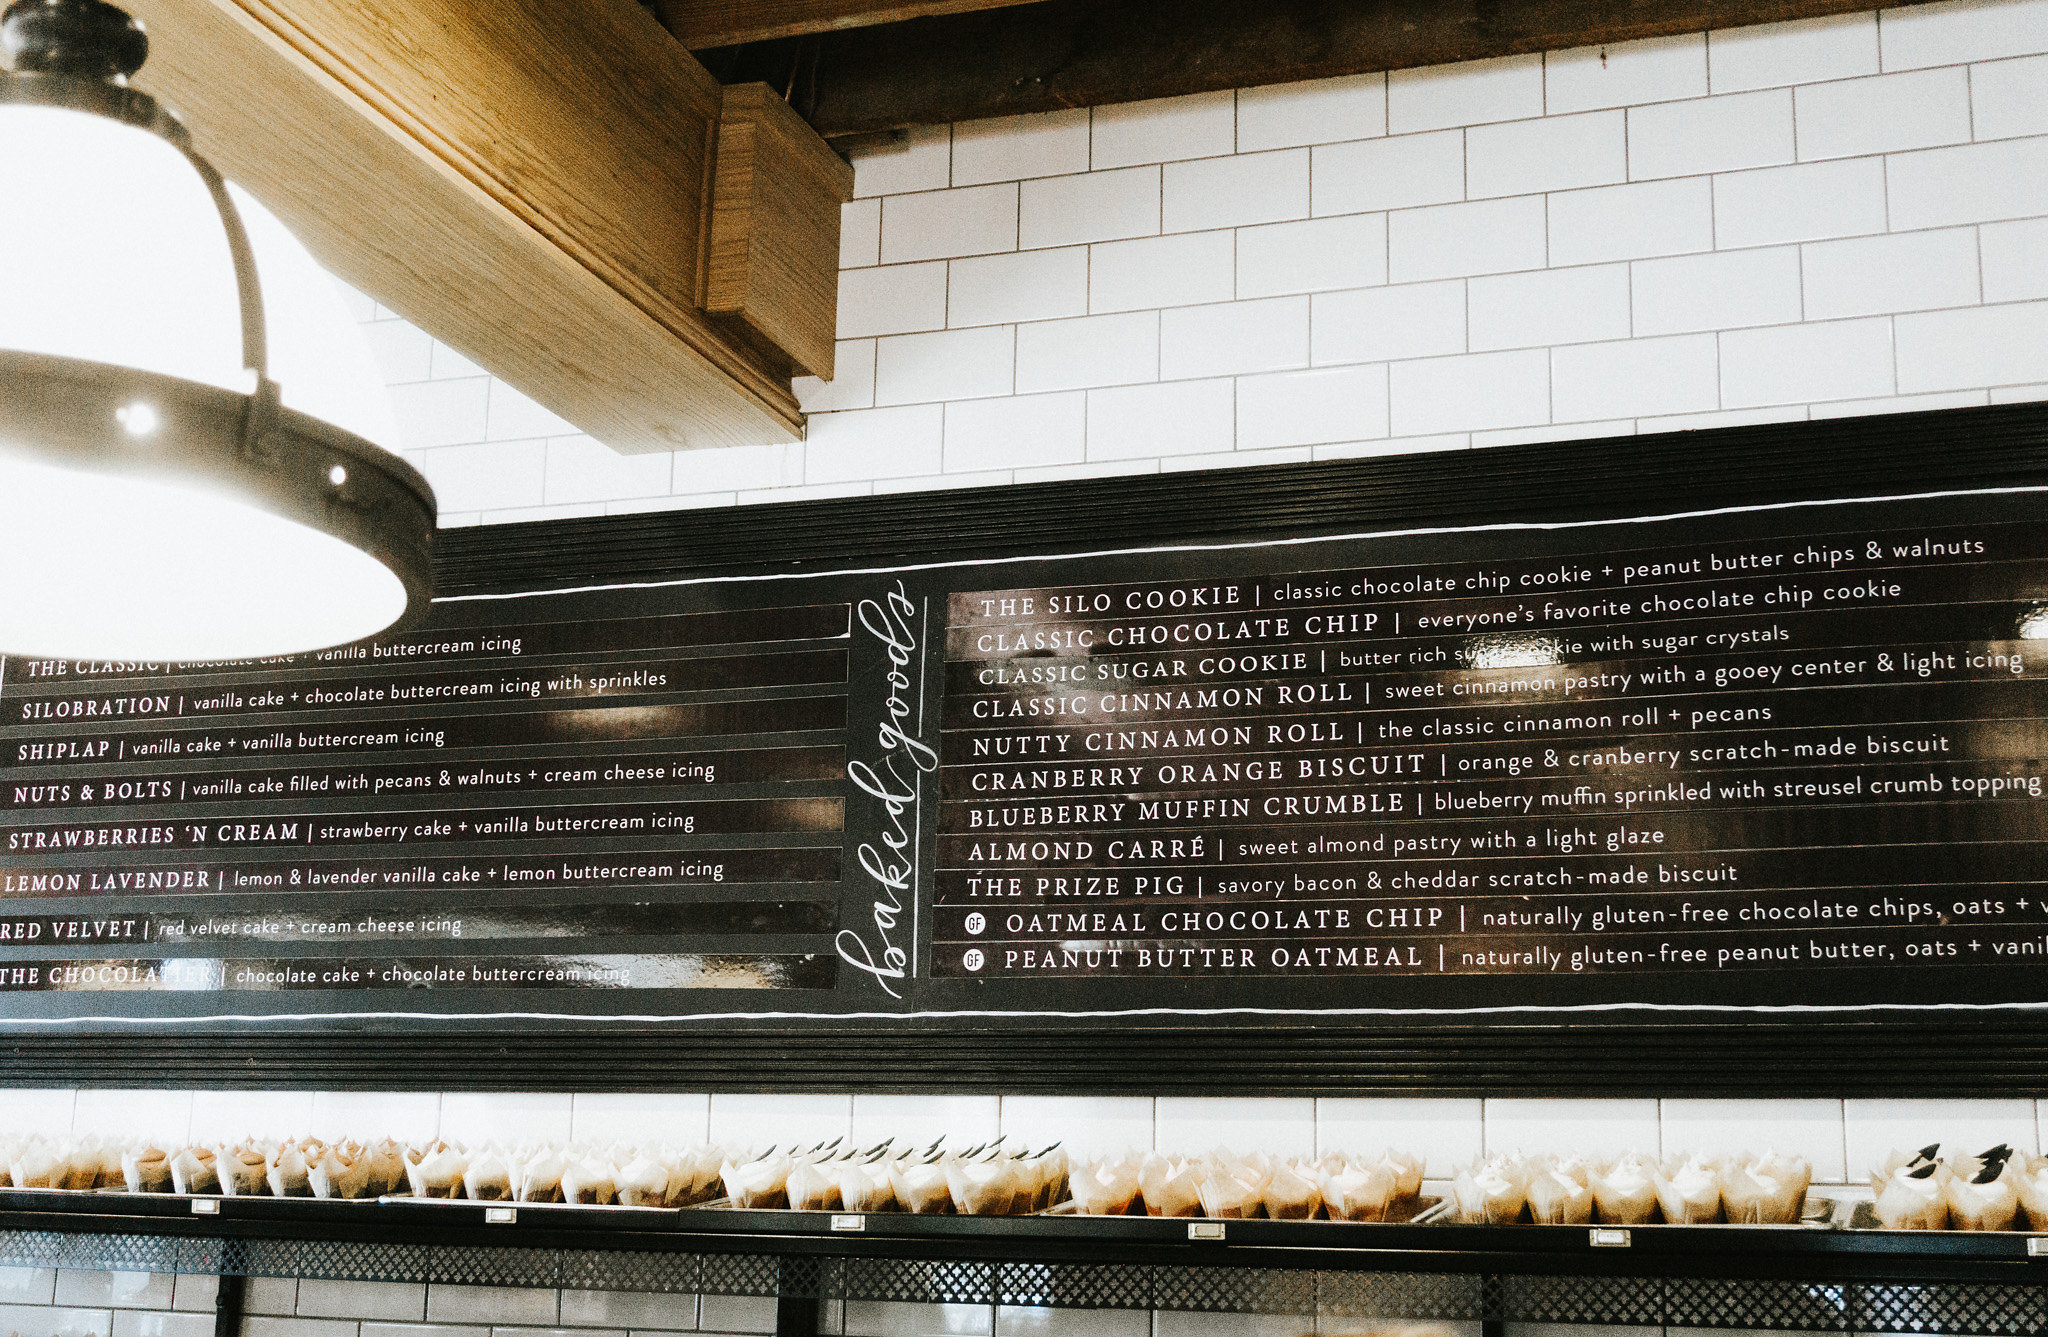 THE CLASSIC | chocolate cake + vanilla buttercream icing
SILOBRATION | vanilla cake + chocolate buttercream icing with sprinkles
SHIPLAP | vanilla cake + vanilla buttercream icing
NUTS & BOLTS | vanilla cake filled with pecans & walnuts + cream cheese icing
STRAWBERRIES ‘N CREAM | strawberry cake + vanilla buttercream icing
LEMON LAVENDER | lemon & lavender vanilla cake + lemon buttercream icing
RED VELVET | red velvet cake + cream cheese icing
THE CHOCOLATIER | chocolate cake + chocolate buttercream icing
baked goods
THE SILO COOKIE | classic chocolate chip cookie + peanut butter chips & walnuts
CLASSIC CHOCOLATE CHIP | everyone’s favorite chocolate chip cookie
CLASSIC SUGAR COOKIE | butter rich sugar cookie with sugar crystals
CLASSIC CINNAMON ROLL | sweet cinnamon pastry with a gooey center & light icing
NUTTY CINNAMON ROLL | the classic cinnamon roll + pecans
CRANBERRY ORANGE BISCUIT | orange & cranberry scratch-made biscuit
BLUEBERRY MUFFIN CRUMBLE | blueberry muffin sprinkled with streusel crumb topping
ALMOND CARRÉ | sweet almond pastry with a light glaze
THE PRIZE PIG | savory bacon & cheddar scratch-made biscuit
GF OATMEAL CHOCOLATE CHIP | naturally gluten-free chocolate chips, oats +
GF PEANUT BUTTER OATMEAL | naturally gluten-free peanut butter, oats + vanil